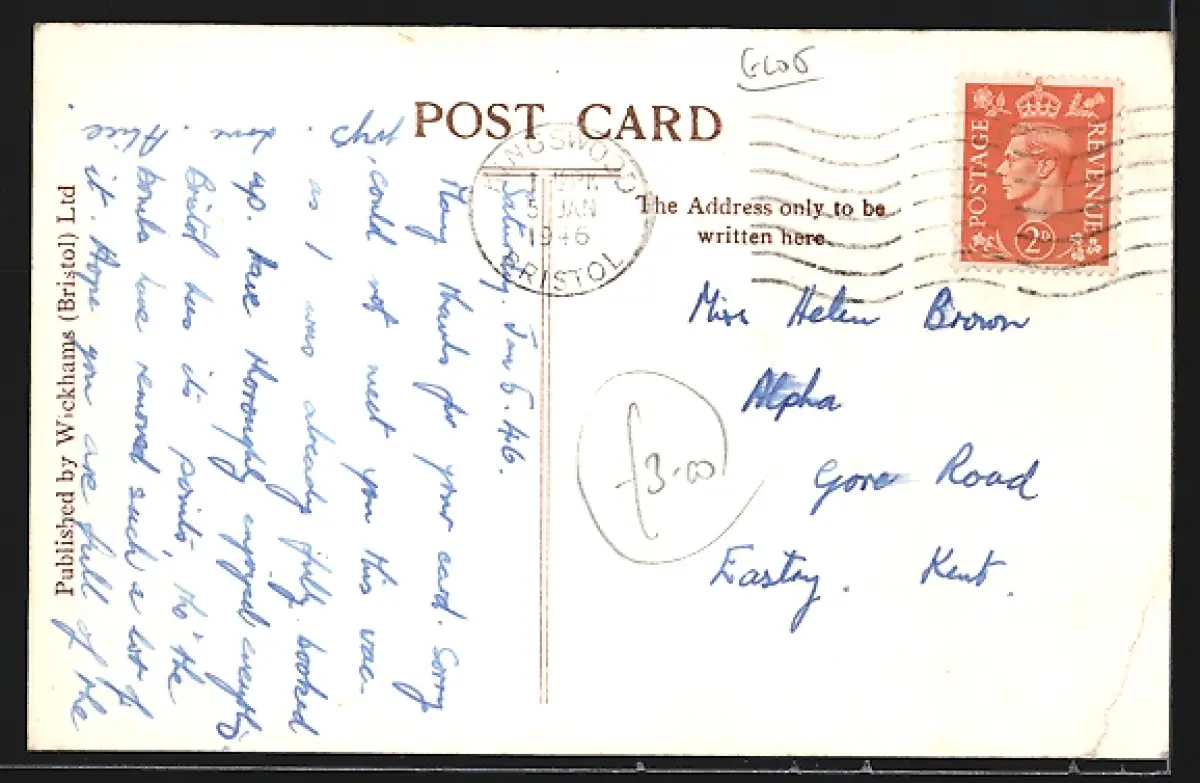 GLOS
POST CARD
KINGSWOOD
5 JAN
1946
BRISTOL
POSTAGE
REVENUE
2D
The Address only to be
written here
Miss Helen Brown
Alpha
Gore Road
Eastry.
Kent.
£3.00
Saturday. Jan 5. 46.
Many thanks for your card. Sorry
I could not meet you this vac.
as I was already fully booked
up. Have thoroughly enjoyed everything.
Bristol has its points, tho' the
bombs have removed such a lot of
it. Hope you are full of the
love
Alice
Published by Wickhams (Bristol) Ltd